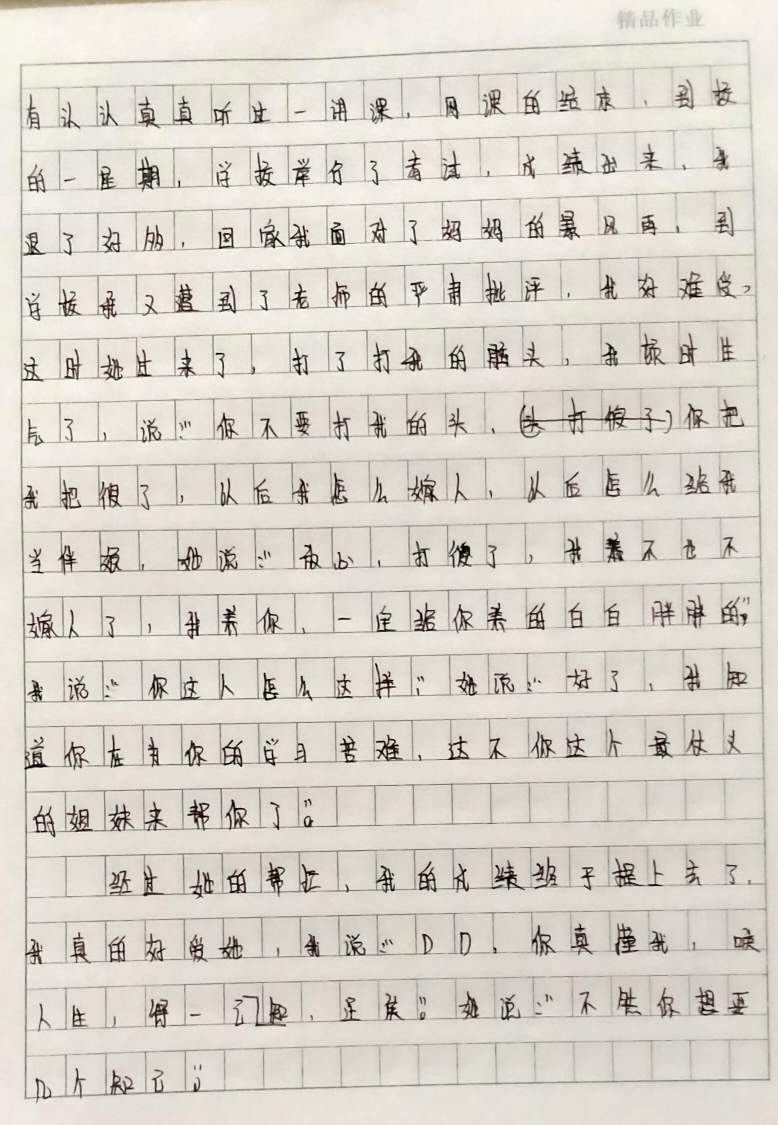 精品作业
有认认真真听过一讲课，网课的结束，到校
的一星期，学校举行了考试，成绩出来，我
退了好多，回家我面对了妈妈的暴风雨，到
学校我又遭到了老师的严肃批评，我好难受，
这时她过来了，打了打我的脑头，我顿时生
气了，说：“你不要打我的头，(头打傻了)你把
我把傻了，以后我怎么嫁人，以后怎么给我
当伴娘，她说：“放心，打傻了，我养不也不
嫁人了，我养你，一定给你养的白白胖胖的”
我说：“你这人怎么这样”她说：“好了，我知
道你在为你的学习苦难，这不你这个最仗义
的姐妹来帮你了”。
经过她的帮忙，我的成绩终于提上去了，
我真的好爱她，我说：“DD，你真懂我，唉
人生，得一知己，足矣”。她说：“不然你想要
几个知己”